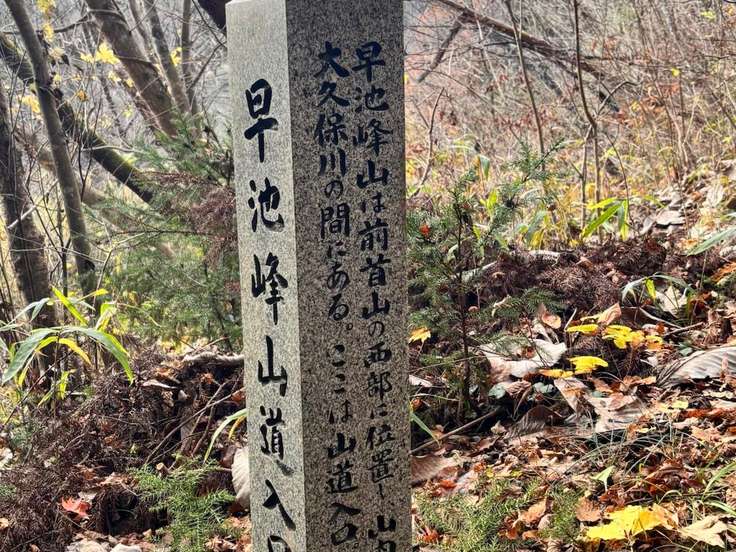 早池峰山道入口
早池峰山は前首山の西部に位置し山内
大久保川の間にある。ここは山道入口